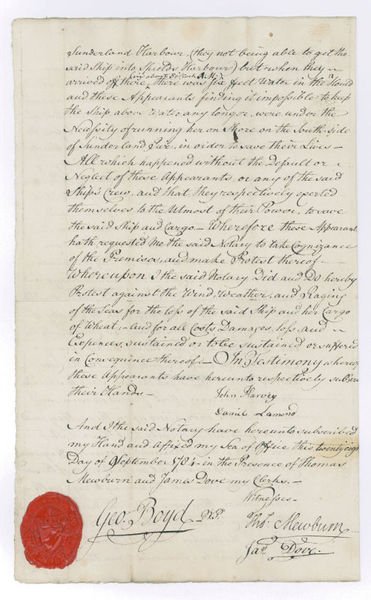 Sunderland Harbour, (they not being able to get the
said Ship into Shields Harbour) but when they
arrived off there, there was six feet Water in the Hould
and these Appearants finding it impossible to keep
the Ship above Water any longer, were under the
Necessity of running her on Shore on the South side
of Sunderland Pier, in order to save their Lives—
All which happened without the Default or
Neglect of these Appearants or any of the said
Ship's Crew, and that they respectively exerted
themselves to the Utmost of their Power, to save
the said Ship and Cargo — Wherefore these Appearants
hath requested Me the said Notary to take Cognizance
of the Premises, and make Protest thereof—
Whereupon I the said Notary Did and Do hereby
Protest against the Wind, Weather, and Raging
of the Seas for the Loss of the said Ship and her Cargo
of Wheat, And for all Costs, Damages, loss, and
Expences, sustained or to be sustained or suffered
in Consequence thereof. — In Testimony whereof
these Appearants have hereunto respectively subscribed
their Hands—
John Harvey
Daniel Lamond
And I the said Notary have hereunto subscribed
my Hand and affixed my Seal of Office this twenty eighth
Day of September 1784 in the Presence of Thomas
Mewburn and James Dove my Clerks.—
Witnesses—
Geo. Boyd
Thos. Mewburn
Jas. Dove